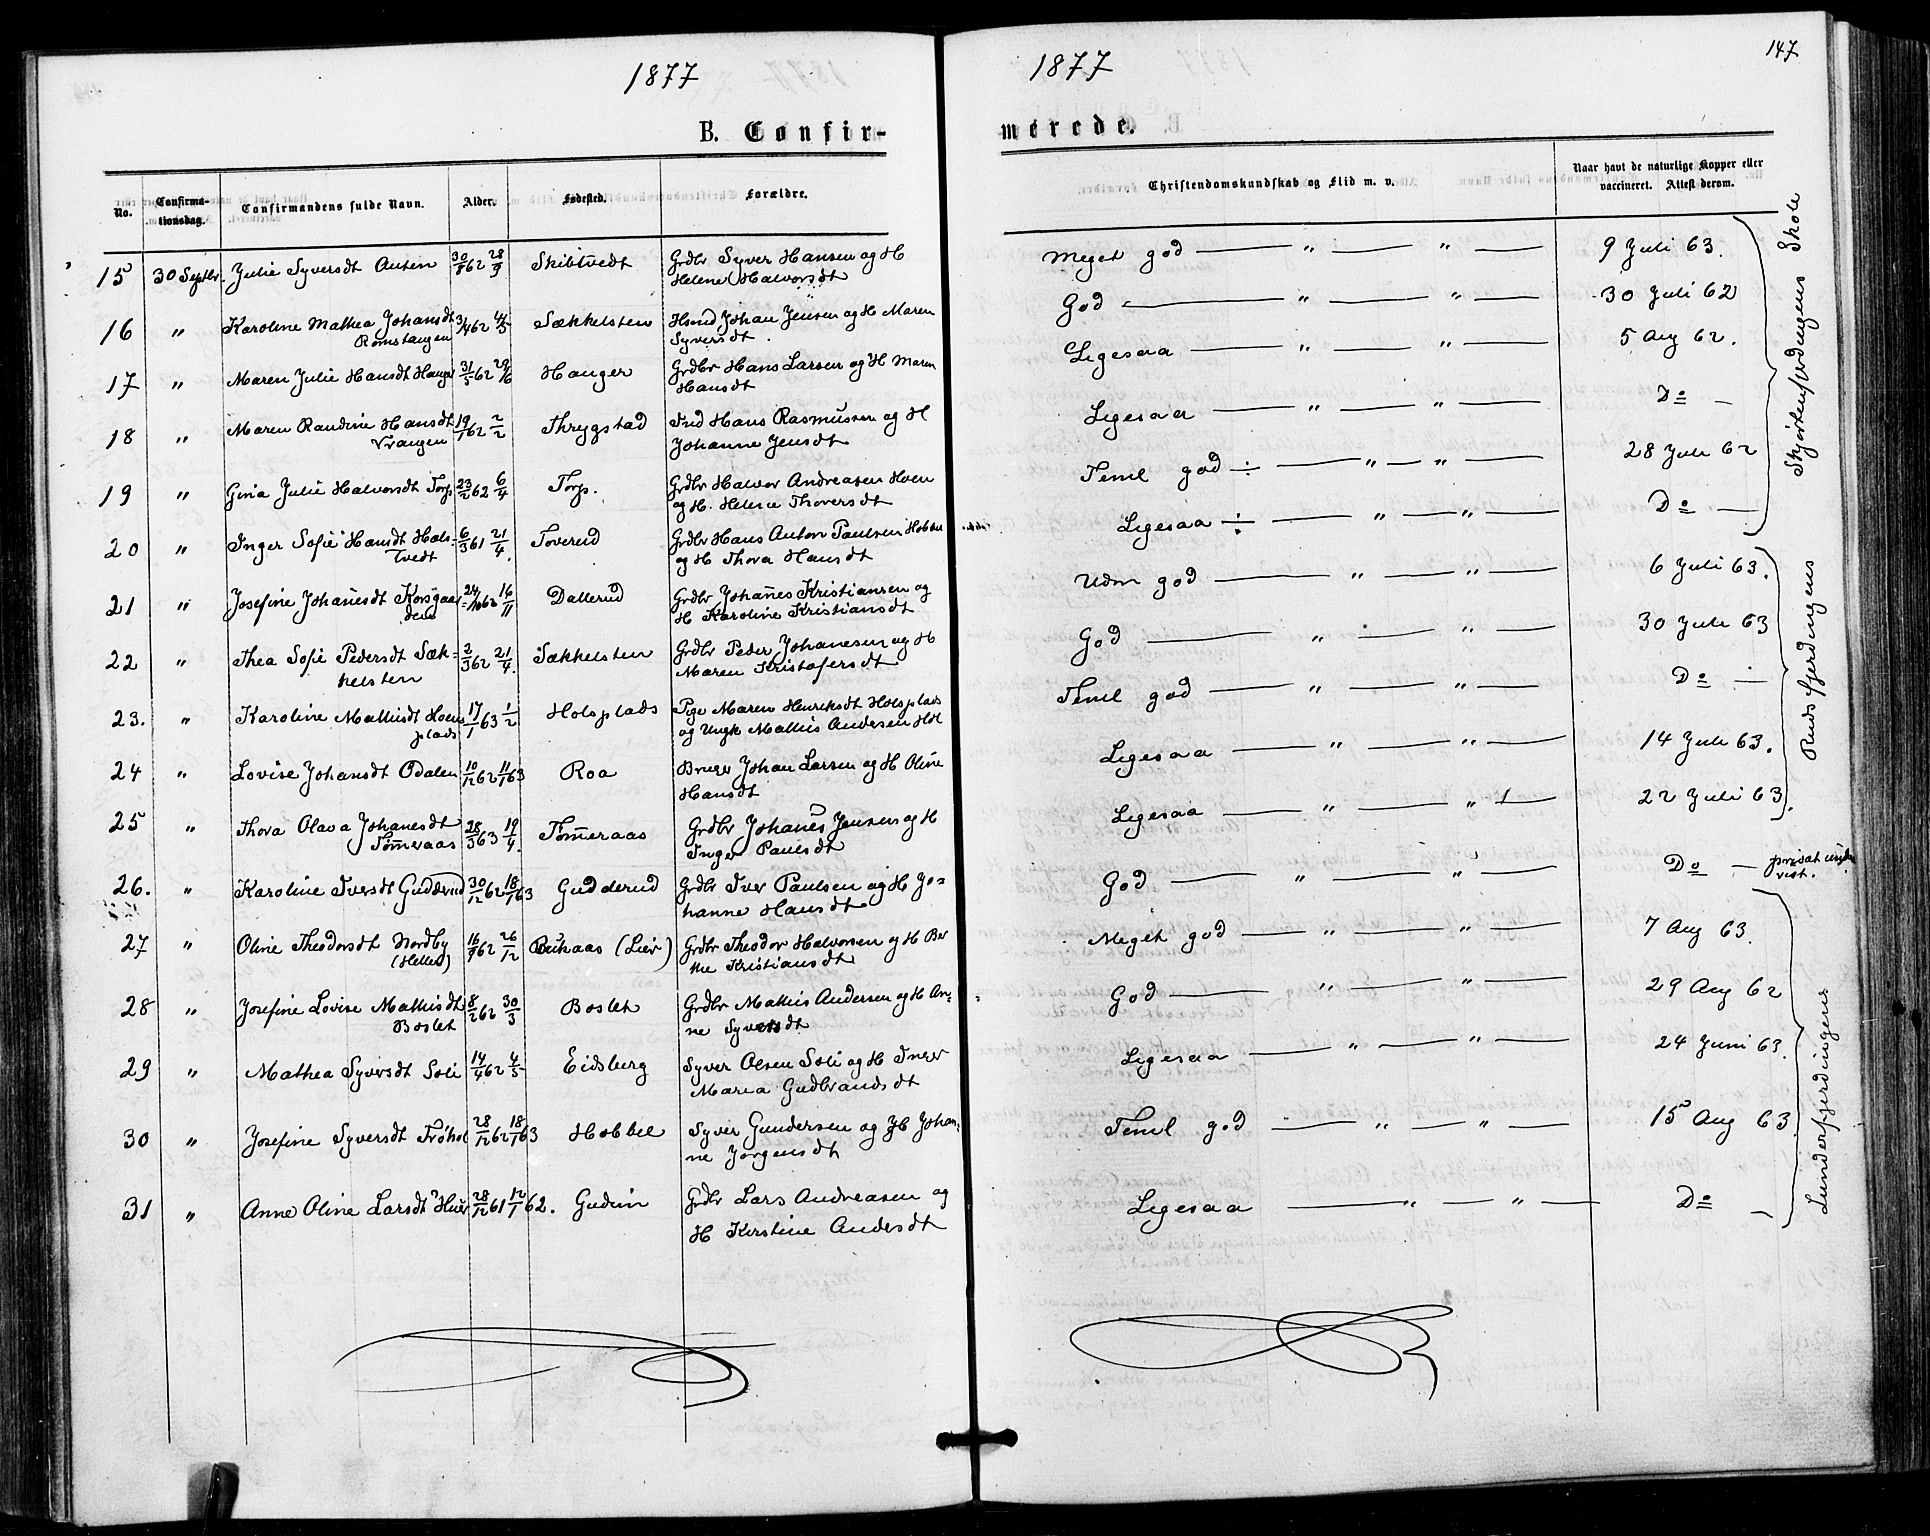 1877
B. Confir-
No.
Confirma-
tionsdag.
Confirmandens fulde Navn.
Alder.
Fødested.
Forældre.
15 30 Septbr Julie Syversdt Auten 30/8 62 28/9 Skibtvedt Grdbr Syver Hansen og H
Helene Halvorsdt
16 " Karoline Mathea Johansdt 3/4 62 4/5 Sækkelsten Hsmd Johan Jensen og H Maren
Romstangen Syversdt.
17 " Maren Julie Hansdt Hauger 31/5 62 29/6 Hauger Grdbr Hans Larsen og H Maren
Hansdt
18 " Maren Randine Hansdt 19/1 62 2/2 Thrygstad Ind Hans Rasmussen og H
Vrangen Johanne Jensdt
19 " Gina Julie Halvorsdt Torp 23/2 62 6/4 Torp. Grdbr Halvor Andreasen Hoen
og H. Helene Thoversdt
20 " Inger Sofie Hansdt Hols- 6/3 61 21/4. Toverud Grdbr Hans Anton Paulsen Hobbel
tvedt og H Thora Hansdt
21 " Josefine Johanesdt Korsgaar- 24/10 62 16/11 Dallerud Grdbr Johanes Kristiansen og
den H Karoline Kristiansdt
22 " Thea Sofie Pedersdt Sæk- 2/3 62 21/4. Sækkelsten Grdbr Peder Johanesen og H
kelsten Maren Kristofersdt
23. " Karoline Mathisdt Hoens 17/1 63 1/2 Holsplads Pige Maren Henriksdt Holsplads
plads og Ungk Mathis Andersen Hol
24 " Lovise Johansdt Odalen 10/12 62 11/1 63 Roa Bruger Johan Larsen og H Oline
Hansdt
25 " Thora Olava Johanesdt 28/3 63 19/4. Tømeraas Grdbr Johanes Jensen og H
Tømeraas Inger Paulsdt
26. " Karoline Iversdt Gudderud 30/12 62 18/1 63 Gudderud Grdbr Iver Paulsen og H Jo-
hanne Hansdt
27 " Oline Theodorsdt Nordby 16/9 62 26/12 Bukaas (Lier) Grdbr Theodor Halvorsen og H Ber
(Hellen) the Kristiansdt
28 " Josefine Lovise Mathisdt 8/2 62 30/3 Boslet Grdbr Mathis Andersen og H An-
Boslet ne Syversdt
29 " Mathea Syversdt Soli 14/4 62 4/5 Eidsberg Syver Olsen Soli og H Inger
Maria Gudbrandsdt
30 " Josefine Syversdt Frøhol 28/12 62 18/1 63 Hobbel Syver Gundersen og H Johan-
ne Jørgensdt
31 " Anne Oline Larsdt Huer 28/12 61 12/1 62. Gudim Grdbr Lars Andreasen og
H Kirstine Andersdt
1877
147
merede.
Christendomskundskab og Flid m. v.
Naar havt de naturlige Kopper eller
vaccineret. Attest derom.
Meget god — " — " — 9 Juli 63.
God — " — " — 30 Juli 62
Ligesaa — " — " — 5 Aug 62.
Ligesaa — " — " — Do —
Teml god ÷ — " — " — 28 Juli 62
Ligesaa ÷ — " — " — Do —
Skjørtenfjerdingens Skole
Udm god — " — " — 6 Juli 63.
God — " — " — 30 Juli 63
Teml god — " — " — Do —
Ligesaa — " — " — 14 Juli 63.
Ligesaa — " — " — 22 Juli 63.
Ruds fjerdingens
God — " — " — Do — privat under
vist.
Meget god — " — " — 7 Aug 63.
God — " — " — 29 Aug 62
Ligesaa — " — " — 24 Juni 63.
Teml god — " — " — 15 Aug 63
Ligesaa — " — " — Do —
Lunderfjerdingens